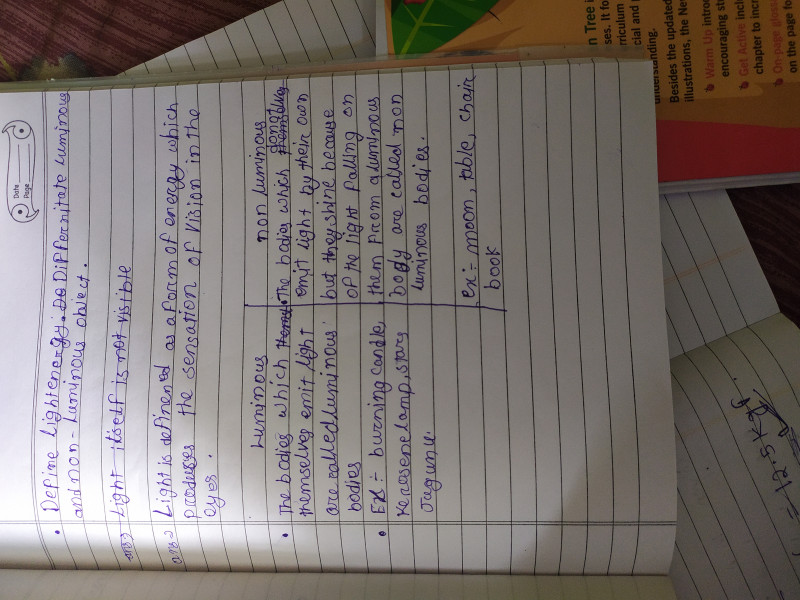 Date
Page
• Define lightenergy. Do Differnitate luminous
and non-luminous object.
ans→ Light itself is not visible
ans→ Light is definened as a form of energy which
produses the sensation of vision in the
eyes.
Luminous
• The bodies which
themselves emit light
are called luminous
bodies
• Ex:- burning candle,
Kerosene lamp, stars
Jugunu.
non luminous
• The bodies which donot
emit light by their own
but they shine because
of the light falling on
them from a luminous
body are called non
luminous bodies.
ex:- moon, table, chair
book
n Tree i
ses. It fo
rriculum
cial and
understanding.
Besides the updated
illustrations, the New
Warm Up introd
encouraging st
Get Active inclu
chapter to incre
On-page gloss
on the page fo
= 12.5 kg